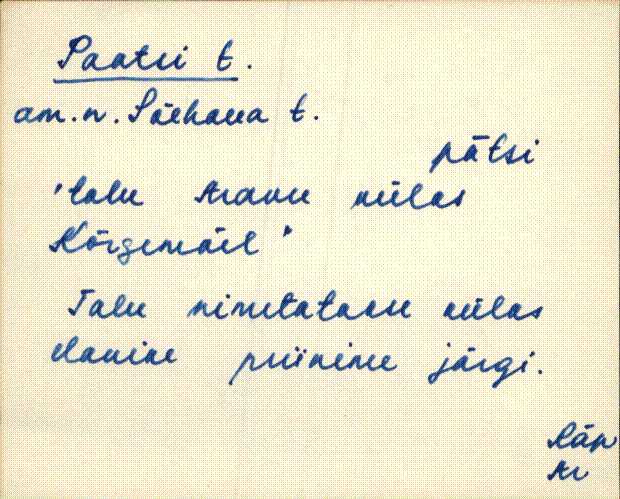 Paatsi t.
am.n. Söehaua t.
pätsi
'talu Aravu külas
Kõrgemäel'
Talu nimetatakse külas
elaniku priinime järgi.
Räp
Ar